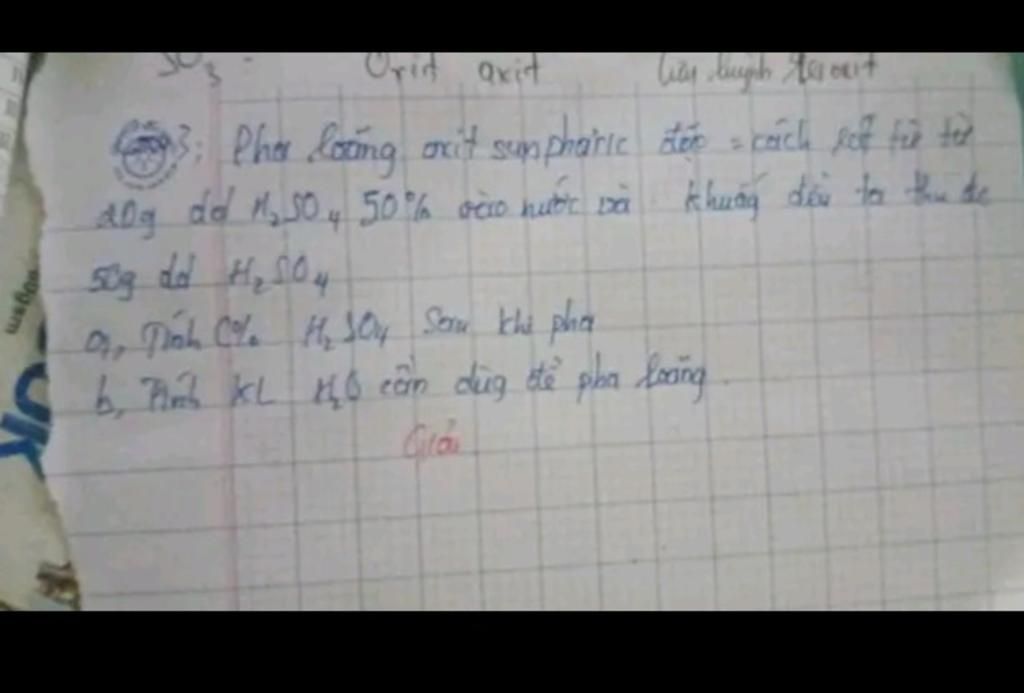 SO3 Oxit axit
3: Pha loãng axit sunpharic đặc = cách rót từ từ
20g dd H2SO4 50% vào nước và khuấy đều ta thu đc
50g dd H2SO4
a, Tính C% H2SO4 sau khi pha
b, Tính KL H2O cần dùg để pha loãng.
Giải